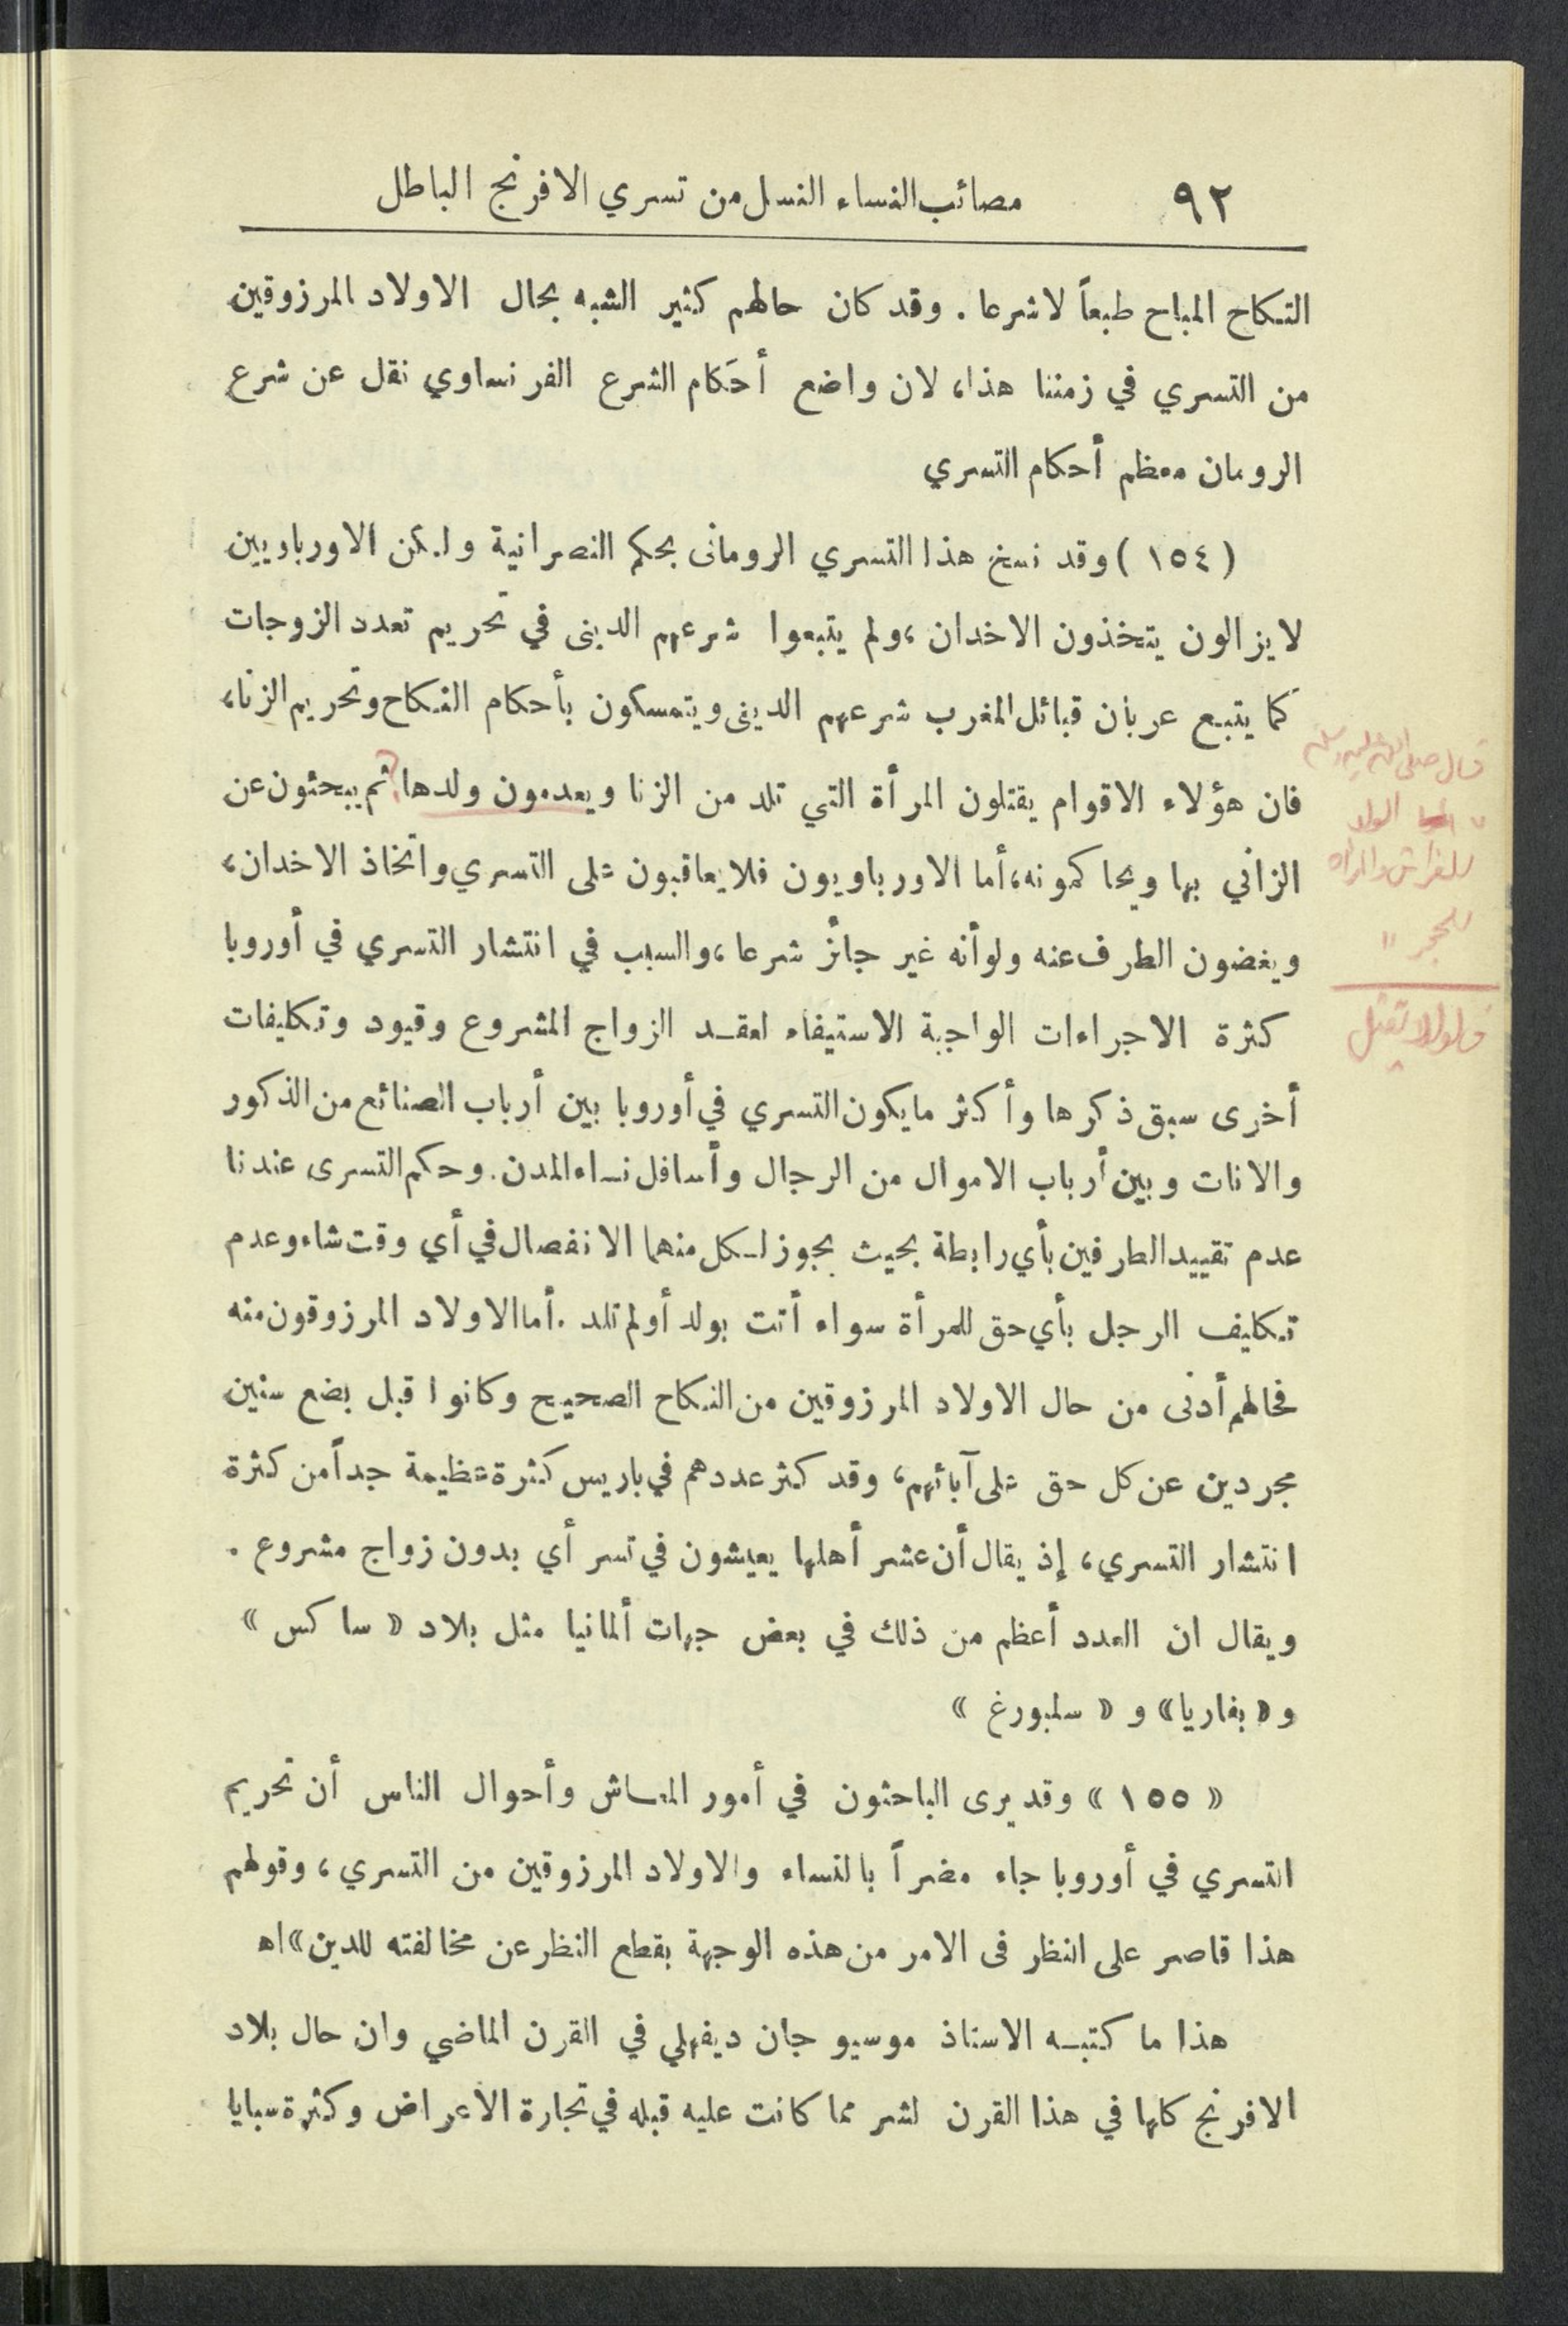 ٩٢ مصائب النساء النسل من تسري الافرنج الباطل
النكاح المباح طبعاً لا شرعا . وقد كان حالهم كثير الشبه بحال الاولاد المرزوقين
من التسري في زمننا هذا، لان واضع أحكام الشرع الفرنساوي نقل عن شرع
الرومان معظم أحكام التسري
(١٥٤) وقد نسخ هذا التسري الرومانى بحكم النصرانية ولكن الاورباويين
لا يزالون يتخذون الاخدان، ولم يتبعوا شرعهم الدينى في تحريم تعدد الزوجات
كما يتبع عربان قبائل المغرب شرعهم الدينى ويتمسكون بأحكام النكاح وتحريم الزنا،
فان هؤلاء الاقوام يقتلون المرأة التي تلد من الزنا ويعدمون ولدها ثم يبحثون عن
الزاني بها ويحاكمونه، أما الاورباويون فلا يعاقبون على التسري واتخاذ الاخدان،
ويغضون الطرف عنه ولو أنه غير جائز شرعا، والسبب في انتشار التسري في أوروبا
كثرة الاجراءات الواجبة الاستيفاء لعقد الزواج المشروع وقيود وتكليفات
أخرى سبق ذكرها وأكثر ما يكون التسري في أوروبا بين أرباب الصنائع من الذكور
والانات وبين أرباب الاموال من الرجال وأسافل نساء المدن. وحكم التسرى عندنا
عدم تقييد الطرفين بأي رابطة بحيث يجوز لكل منهما الانفصال في أي وقت شاء وعدم
تكليف الرجل بأي حق للمرأة سواء أتت بولد أو لم تلد . أما الاولاد المرزوقون منه
فحالهم أدنى من حال الاولاد المرزوقين من النكاح الصحيح وكانوا قبل بضع سنين
مجردين عن كل حق على آبائهم، وقد كثر عددهم في باريس كثرة عظيمة جداً من كثرة
انتشار التسري، إذ يقال أن عشر أهلها يعيشون في تسر أي بدون زواج مشروع .
ويقال ان العدد أعظم من ذلك في بعض جهات ألمانيا مثل بلاد « ساكس »
و « بفاريا » و « سلبورغ »
« ١٥٥ » وقد يرى الباحثون في أمور المعاش وأحوال الناس أن تحريم
التسري في أوروبا جاء مضراً بالنساء والاولاد المرزوقين من التسري، وقولهم
هذا قاصر على النظر فى الامر من هذه الوجهة بقطع النظر عن مخالفته للدين » اه
هذا ما كتبه الاستاذ موسيو جان ديفهلي في القرن الماضي وان حال بلاد
الافرنج كلها في هذا القرن لشر مما كانت عليه قبله في تجارة الاعراض وكثرة سبايا
قال صلى الله عليه وسلم
" الولد
للفراش
للحجر "